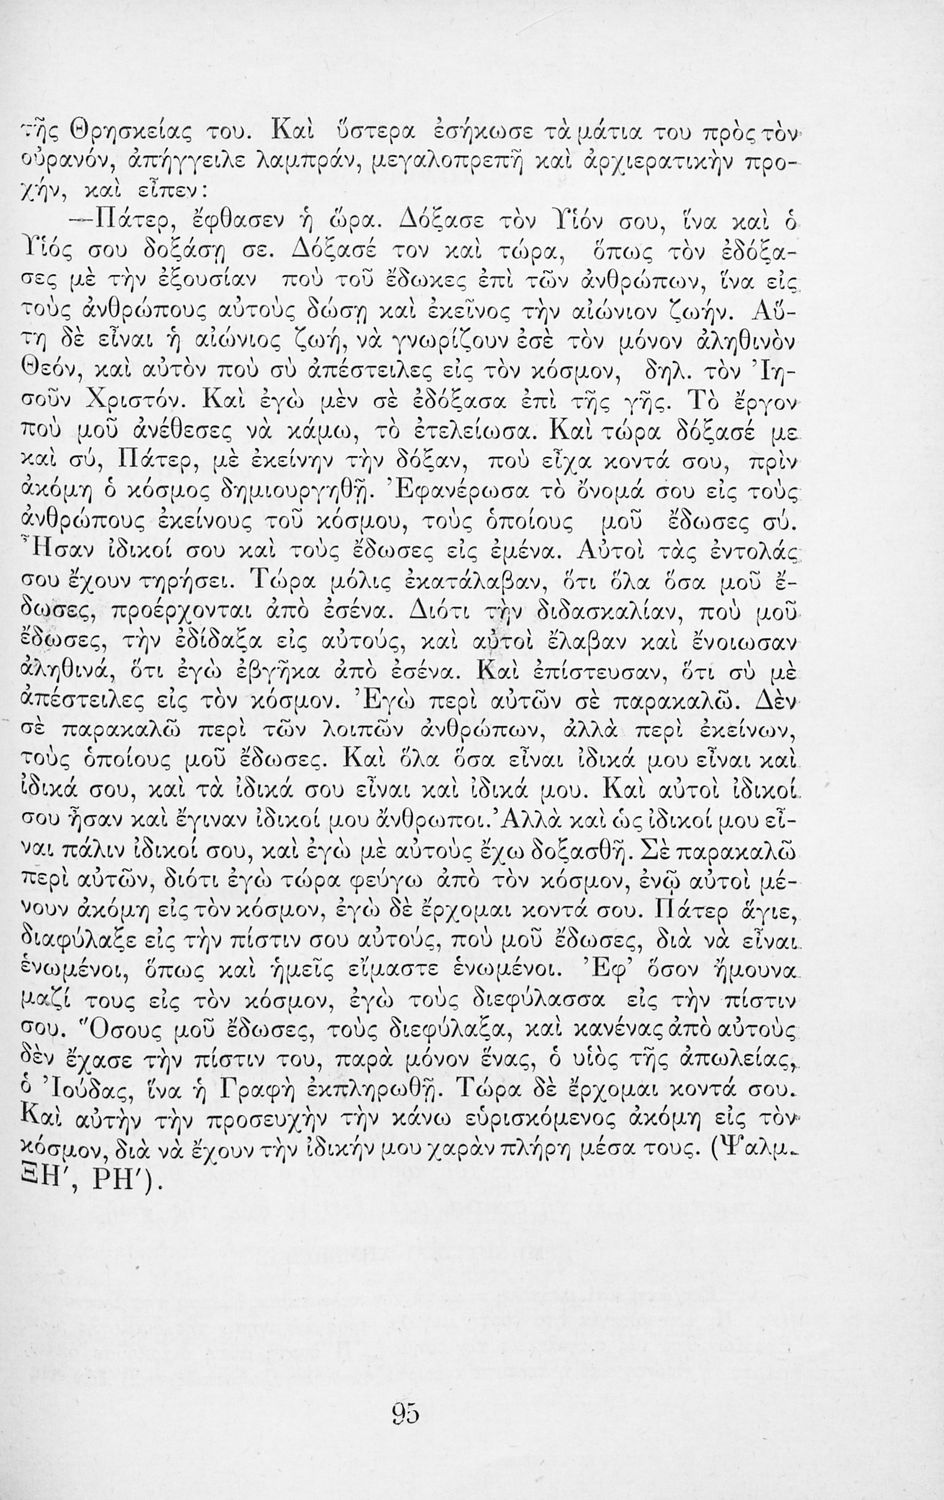 τῆς Θρησκείας του. Καὶ ὕστερα ἐσήκωσε τὰ μάτια του πρὸς τὸν
οὐρανόν, ἀπήγγειλε λαμπράν, μεγαλοπρεπῆ καὶ ἀρχιερατικὴν προ-
χήν, καὶ εἶπεν:
—Πάτερ, ἔφθασεν ἡ ὥρα. Δόξασε τὸν Υἱόν σου, ἵνα καὶ ὁ
Υἱός σου δοξάσῃ σε. Δόξασέ τον καὶ τώρα, ὅπως τὸν ἐδόξα-
σες μὲ τὴν ἐξουσίαν ποὺ τοῦ ἔδωκες ἐπὶ τῶν ἀνθρώπων, ἵνα εἰς
τοὺς ἀνθρώπους αὐτοὺς δώσῃ καὶ ἐκεῖνος τὴν αἰώνιον ζωήν. Αὕ-
τη δὲ εἶναι ἡ αἰώνιος ζωή, νὰ γνωρίζουν ἐσὲ τὸν μόνον ἀληθινὸν
Θεόν, καὶ αὐτὸν ποὺ σὺ ἀπέστειλες εἰς τὸν κόσμον, δηλ. τὸν Ἰη-
σοῦν Χριστόν. Καὶ ἐγὼ μὲν σὲ ἐδόξασα ἐπὶ τῆς γῆς. Τὸ ἔργον
ποὺ μοῦ ἀνέθεσες νὰ κάμω, τὸ ἐτελείωσα. Καὶ τώρα δόξασέ με
καὶ σύ, Πάτερ, μὲ ἐκείνην τὴν δόξαν, ποὺ εἶχα κοντά σου, πρὶν
ἀκόμη ὁ κόσμος δημιουργηθῇ. Ἐφανέρωσα τὸ ὄνομά σου εἰς τοὺς
ἀνθρώπους ἐκείνους τοῦ κόσμου, τοὺς ὁποίους μοῦ ἔδωσες σύ.
Ἦσαν ἰδικοί σου καὶ τοὺς ἔδωσες εἰς ἐμένα. Αὐτοὶ τὰς ἐντολάς
σου ἔχουν τηρήσει. Τώρα μόλις ἐκατάλαβαν, ὅτι ὅλα ὅσα μοῦ ἔ-
δωσες, προέρχονται ἀπὸ ἐσένα. Διότι τὴν διδασκαλίαν, ποὺ μοῦ
ἔδωσες, τὴν ἐδίδαξα εἰς αὐτούς, καὶ αὐτοὶ ἔλαβαν καὶ ἔνοιωσαν
ἀληθινά, ὅτι ἐγὼ ἐβγῆκα ἀπὸ ἐσένα. Καὶ ἐπίστευσαν, ὅτι σὺ μὲ
ἀπέστειλες εἰς τὸν κόσμον. Ἐγὼ περὶ αὐτῶν σὲ παρακαλῶ. Δὲν
σὲ παρακαλῶ περὶ τῶν λοιπῶν ἀνθρώπων, ἀλλὰ περὶ ἐκείνων,
τοὺς ὁποίους μοῦ ἔδωσες. Καὶ ὅλα ὅσα εἶναι ἰδικά μου εἶναι καὶ
ἰδικά σου, καὶ τὰ ἰδικά σου εἶναι καὶ ἰδικά μου. Καὶ αὐτοὶ ἰδικοί
σου ἦσαν καὶ ἔγιναν ἰδικοί μου ἄνθρωποι. Ἀλλὰ καὶ ὡς ἰδικοί μου εἶ-
ναι πάλιν ἰδικοί σου, καὶ ἐγὼ μὲ αὐτοὺς ἔχω δοξασθῆ. Σὲ παρακαλῶ
περὶ αὐτῶν, διότι ἐγὼ τώρα φεύγω ἀπὸ τὸν κόσμον, ἐνῷ αὐτοὶ μέ-
νουν ἀκόμη εἰς τὸν κόσμον, ἐγὼ δὲ ἔρχομαι κοντά σου. Πάτερ ἅγιε,
διαφύλαξε εἰς τὴν πίστιν σου αὐτούς, ποὺ μοῦ ἔδωσες, διὰ νὰ εἶναι
ἑνωμένοι, ὅπως καὶ ἡμεῖς εἴμαστε ἑνωμένοι. Ἐφ' ὅσον ἤμουνα
μαζί τους εἰς τὸν κόσμον, ἐγὼ τοὺς διεφύλασσα εἰς τὴν πίστιν
σου. Ὅσους μοῦ ἔδωσες, τοὺς διεφύλαξα, καὶ κανένας ἀπὸ αὐτοὺς
δὲν ἔχασε τὴν πίστιν του, παρὰ μόνον ἕνας, ὁ υἱὸς τῆς ἀπωλείας,
ὁ Ἰούδας, ἵνα ἡ Γραφὴ ἐκπληρωθῇ. Τώρα δὲ ἔρχομαι κοντά σου.
Καὶ αὐτὴν τὴν προσευχὴν τὴν κάνω εὑρισκόμενος ἀκόμη εἰς τὸν
κόσμον, διὰ νὰ ἔχουν τὴν ἰδικήν μου χαρὰν πλήρη μέσα τους. (Ψαλμ.
ΞΗ', ΡΗ').
95